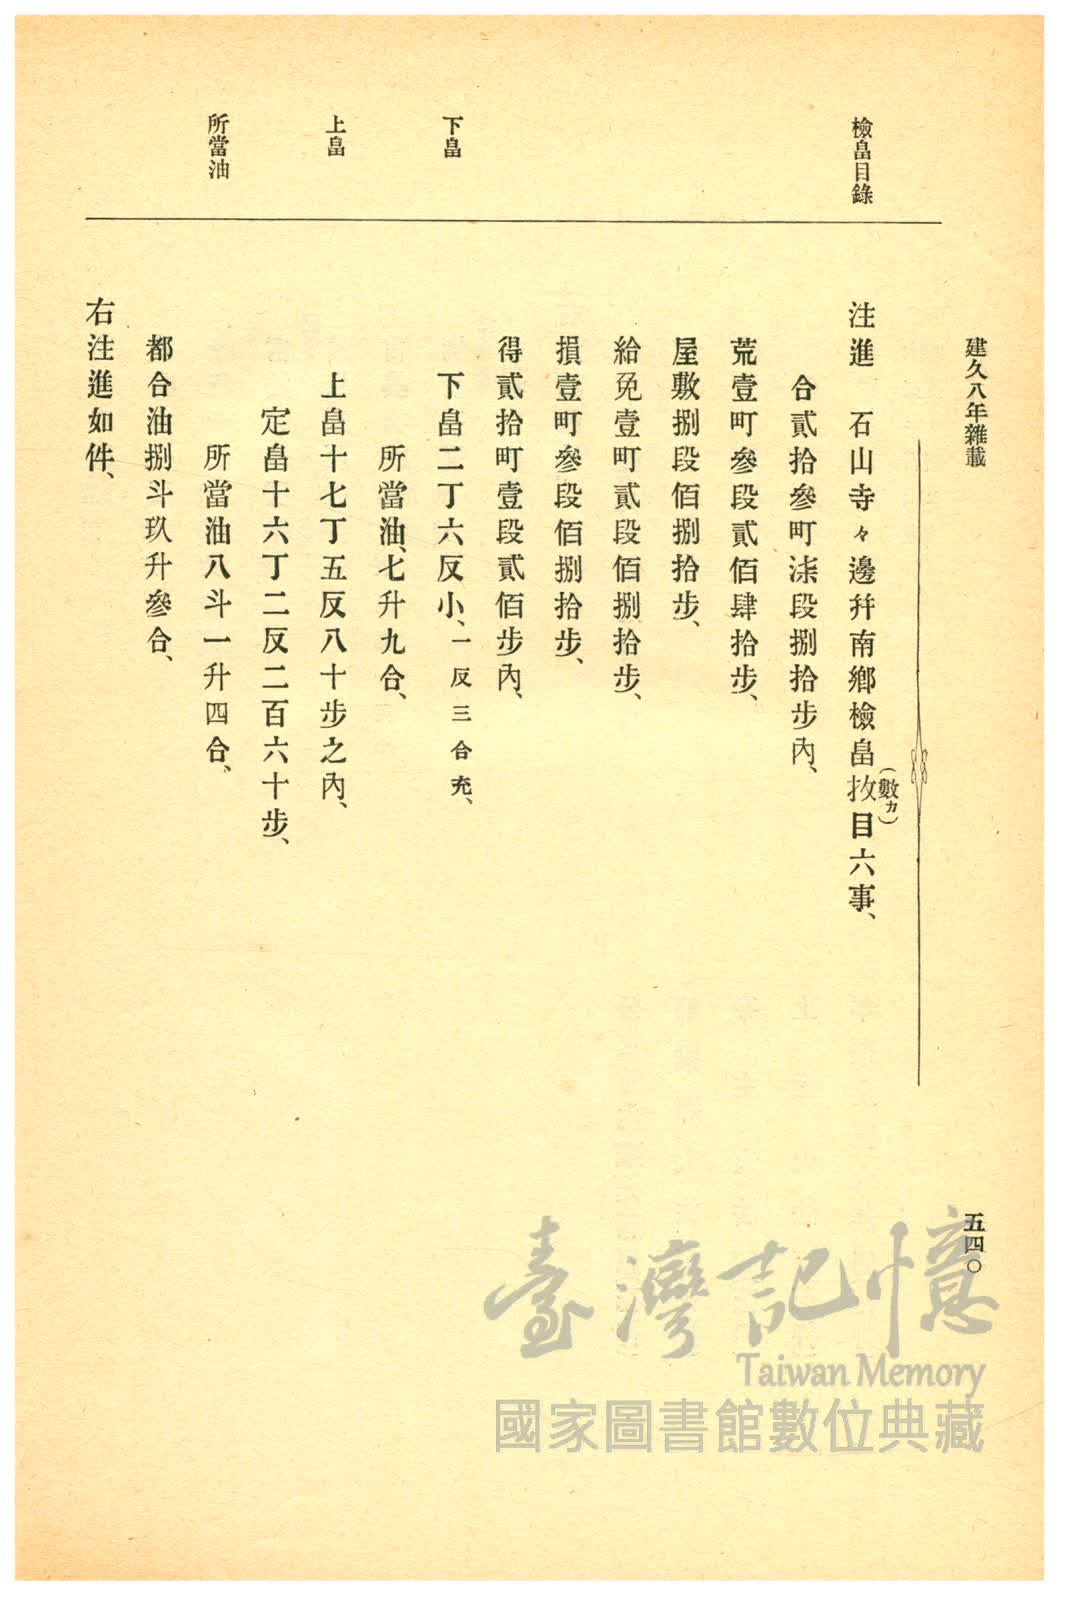 建久八年雜載
五四〇
檢畠目錄
下畠
上畠
所當油
注進　石山寺々邊幷南鄕檢畠㧕目六事、
（數カ）
合貳拾參町柒段捌拾步內、
荒壹町參段貳佰肆拾步、
屋敷捌段佰捌拾步、
給免壹町貳段佰捌拾步、
損壹町參段佰捌拾步、
得貳拾町壹段貳佰步內、
下畠二丁六反小、一反三合充、
所當油、七升九合、
上畠十七丁五反八十步之內、
定畠十六丁二反二百六十步、
所當油八斗一升四合、
都合油捌斗玖升參合、
右注進如件、
臺灣記憶
Taiwan Memory
國家圖書館數位典藏